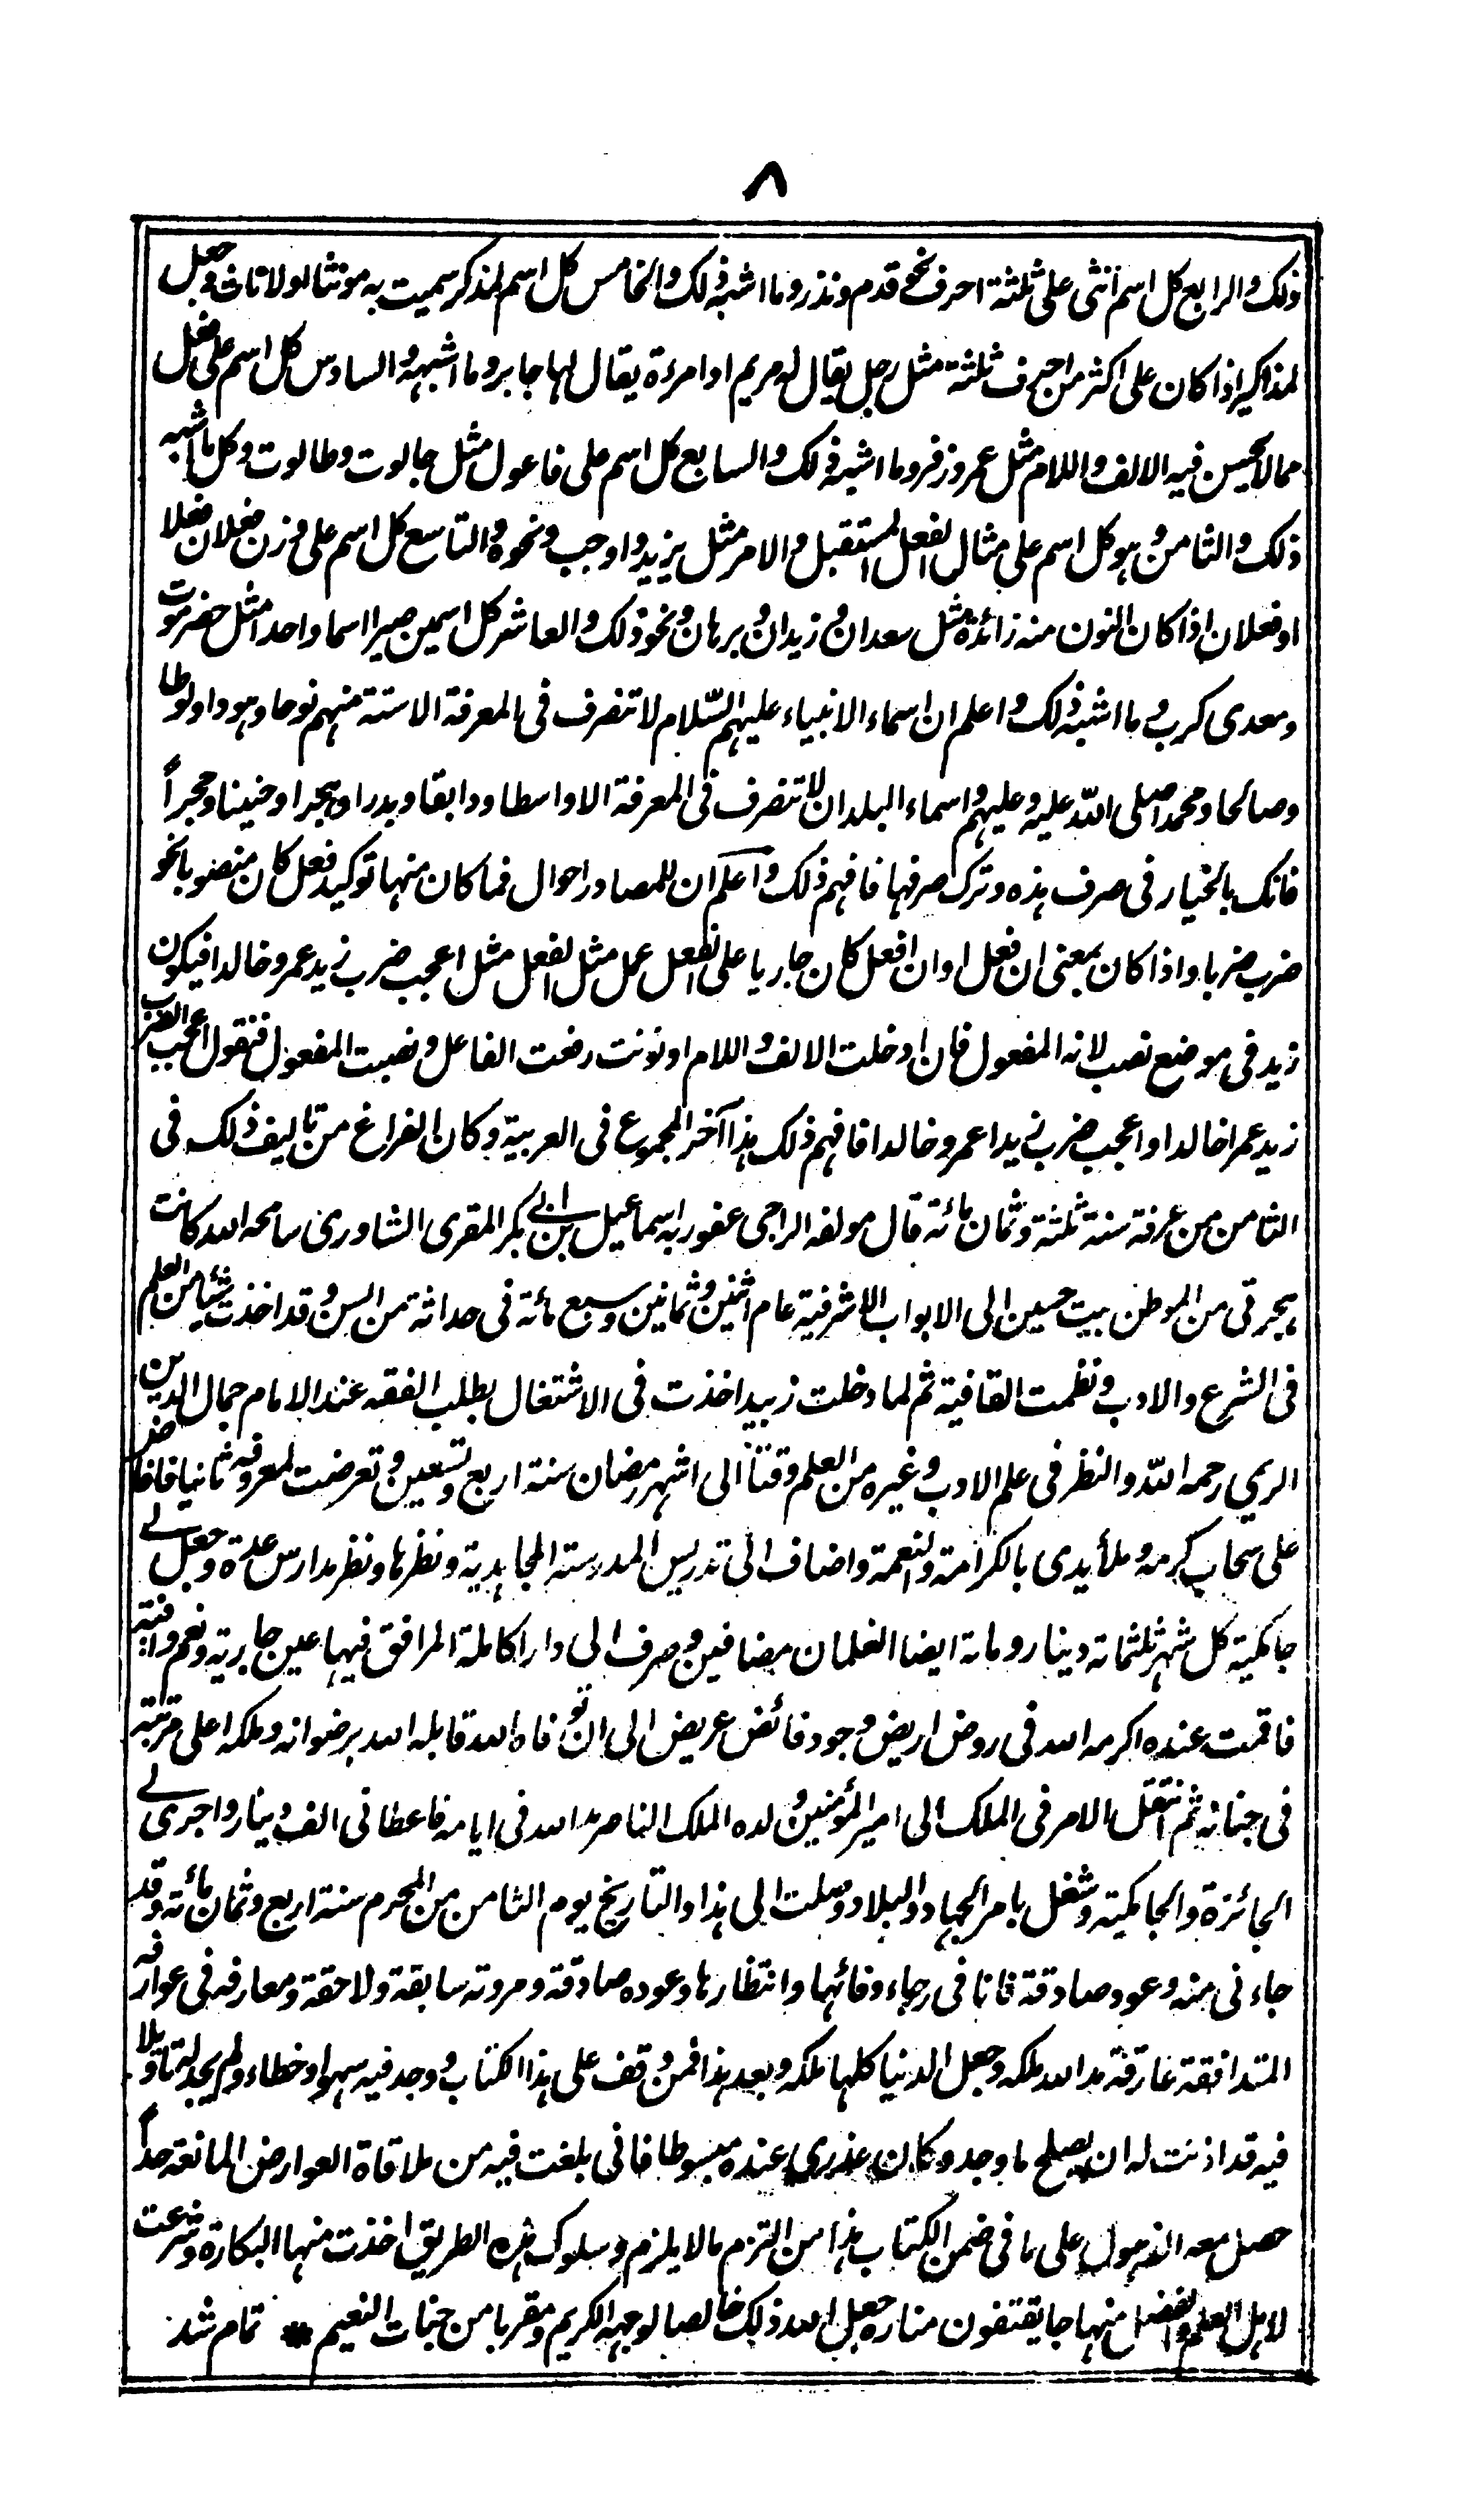 ٨
ذلك والرابع كل اسم انثى على ثلثة احرف نحو قدم ونذر وما اشبه ذلك والخامس كل اسم لمذكر سميت به مونثا لولا تاث وجعل
لمذاكير اذا كان على اكثر من احرف ثلثة مثل رجل يقال له مريم او امرءة يقال لها جابر وما اشبهه والسادس كل اسم على فعل
مما لا يحسن فيه الالف واللام مثل عمر وزفر وما اشبه ذلك والسابع كل اسم على فاعول مثل جالوت وطالوت وكل ما اشبه
ذلك والثامن وهو كل اسم على مثال الفعل المستقبل والامر مثل يزيد واوجب ونحوه والتاسع كل اسم على وزن فعلان فعلا
او فعلان اذا كان النون منه زائدة مثل سعدان وزيدان وبرهان ونحو ذلك والعاشر كل اسمين صيرا اسما واحدا مثل حضرموت
ومعدى كرب وما اشبه ذلك واعلم ان اسماء الانبياء عليهم السّلام لا تنصرف فى المعرفة الا ستة منهم نوحا وهودا ولوطا
وصالحا ومحمدا صلى اللّه عليه وعليهم واسماء البلدان لا تنصرف فى المعرفة الا واسطا ودابقا وبدرا وهجرا وحنينا وحجراً
فانك بالخيار فى صرف هذه وترك صرفها فافهم ذلك واعلم ان للمصادر احوال فما كان منها توكيد فعل كان منصوبا نحو
ضرب ضربا واذا كان بمعنى ان فعل او ان افعل كان جاريا على الفعل عمل مثل الفعل مثل اعجب ضرب زيد عمرو خالدا فيكون
زيد فى موضع نصب لانه المفعول فان ادخلت الالف واللام او نونت رفعت الفاعل ونصبت المفعول فنقول اعجب الضرب
زيد عمرا خالدا واعجب ضرب زيدا عمرو خالدا فافهم ذلك هذا آخر المجموع فى العربية وكان الفراغ من تاليف ذلك فى
الثامن من عرفة سنة ثلثة وثمان مائة قال مولفه الراجى عفو ربه اسماعيل بن ابى بكر المقرى الشاورى سامحه الله كانت
هجرتى من الموطن بيت حسين الى الابواب الاشرفية عام اثنين وثمانين وسبع مائة فى حداثة من السن وقد اخذت شيئا من العلم
فى الشرع والادب ونظمت القافية ثم لما دخلت زبيد اخذت فى الاشتغال بطلب الفقه عند الامام جمال الدين
الريمى رحمه اللّه والنظر فى علم الادب وغيره من العلم وقتاً الى اشهر رمضان سنة اربع وتسعين وتعرضت لمعروفه ثانيا فافاض
على سحاب كرمه وملأ يدى بالكرامة والنعمة واضاف الى تدريس المدرسة المجاهدية ونظرها ونظر مدارس عدة وجعل لى
جامكية كل شهر ثلثمائة دينار ومائة ايضا الغلمان مضافين وصرف الى دارا كاملة المرافق فيها عين جارية ونعم وافية
فاقمت عنده اكرمه الله فى روض اريض وجود فائض عريض الى ان توفاه الله قابله الله برضوانه وملكه اعلى مرتبة
فى جنانه ثم انتقل الامر فى الملك الى امير المؤمنين ولده الملك الناصر مد الله فى ايامه فاعطانى الف دينار واجرى لى
الجائزة والجامكية وشغل بامر الجهاد والبلاد وصلت الى هذا والتاريخ يوم الثامن من المحرم سنة اربع وثمان مائة وقد
جاءنى منه وعود صادقة فانا فى رجاء وفائها وانتظارها وعوده صادقة ومروته سابقة ولاحقة ومعارفه فى عوارفه
المتدافقة غارقة مد الله ملكه وجعل الدنيا كلها ملكه وبعد هذا فمن وقف على هذا الكتاب ووجد فيه سهوا وخطاء ولم يجد له تاويلا
فيه قد اذنت له ان يصلح ما وجد وكان عذرى عنده مبسوطا فانى بلغت فيه من ملاقاة العوارض المانعة حداً
حصل معه الذهول على ما فى ضمن الكتاب هذا من التزم ما لا يلزم وسلوك هذه الطريق اخذت منها البكارة وشرعت
لاهل العلم والفضل منهاجا يقتفون مناره جعل الله ذلك خالصا لوجهه الكريم ومقربا من جنات النعيم * تمام شد